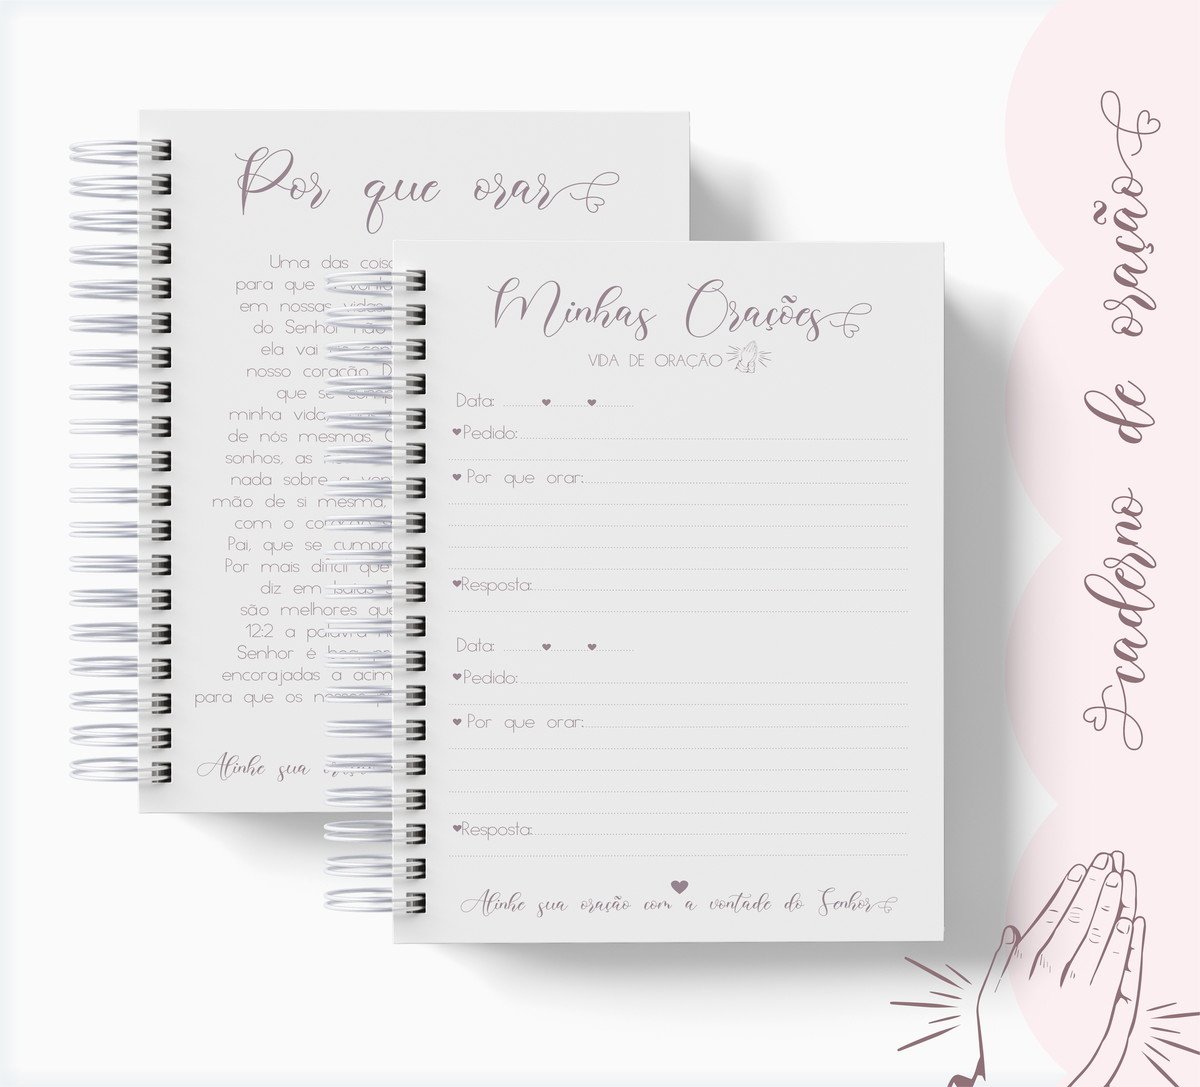 Por que orar
Uma das
para que
em nossas vidas
do Senhor não
ela vai
nosso coração
que se
minha vida,
de nós mesmas.
sonhos, as
nada sobre a
mão de si mesma,
com o
Pai, que se
Por mais difícil que
diz em Isaias
são melhores que
12:2 a palavra
Senhor é
encorajadas a
para que os
Alinhe sua
Minhas Orações
VIDA DE ORAÇÃO
Data:
Pedido:
Por que orar:
Resposta:
Data:
Pedido:
Por que orar:
Resposta:
Alinhe sua oração com a vontade do Senhor
caderno de oração